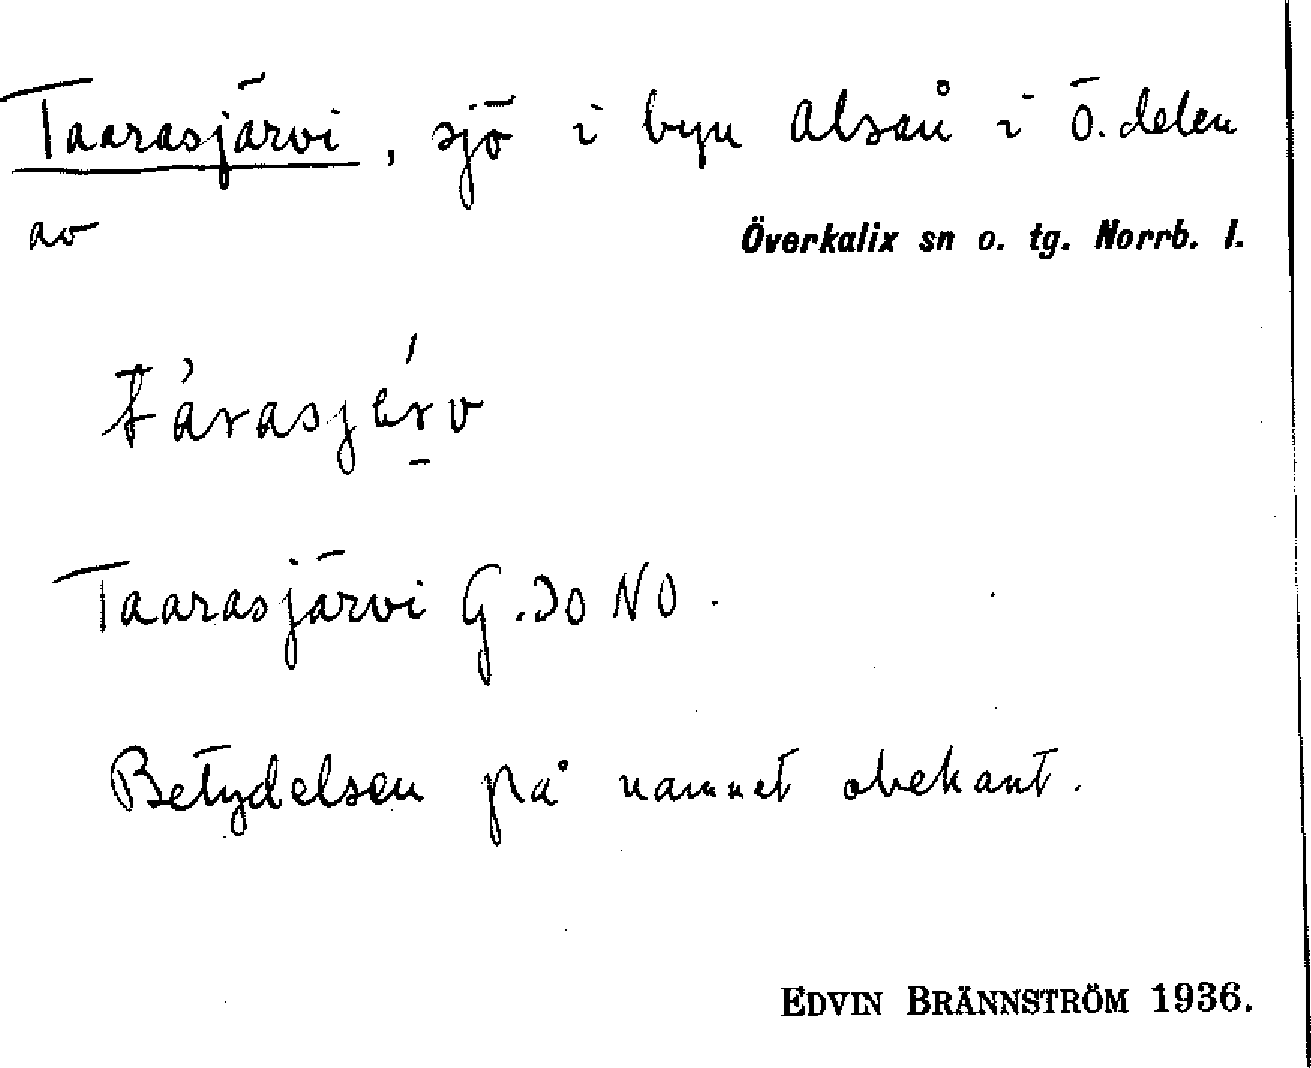 Taarasjärvi, sjö i byn Alsån i ö. delen
av
Överkalix sn o. tg. Norrb. l.
tàrasjérv
Taarasjärvi G. 30 NO.
Betydelsen på namnet obekant.
EDVIN BRÄNNSTRÖM 1936.